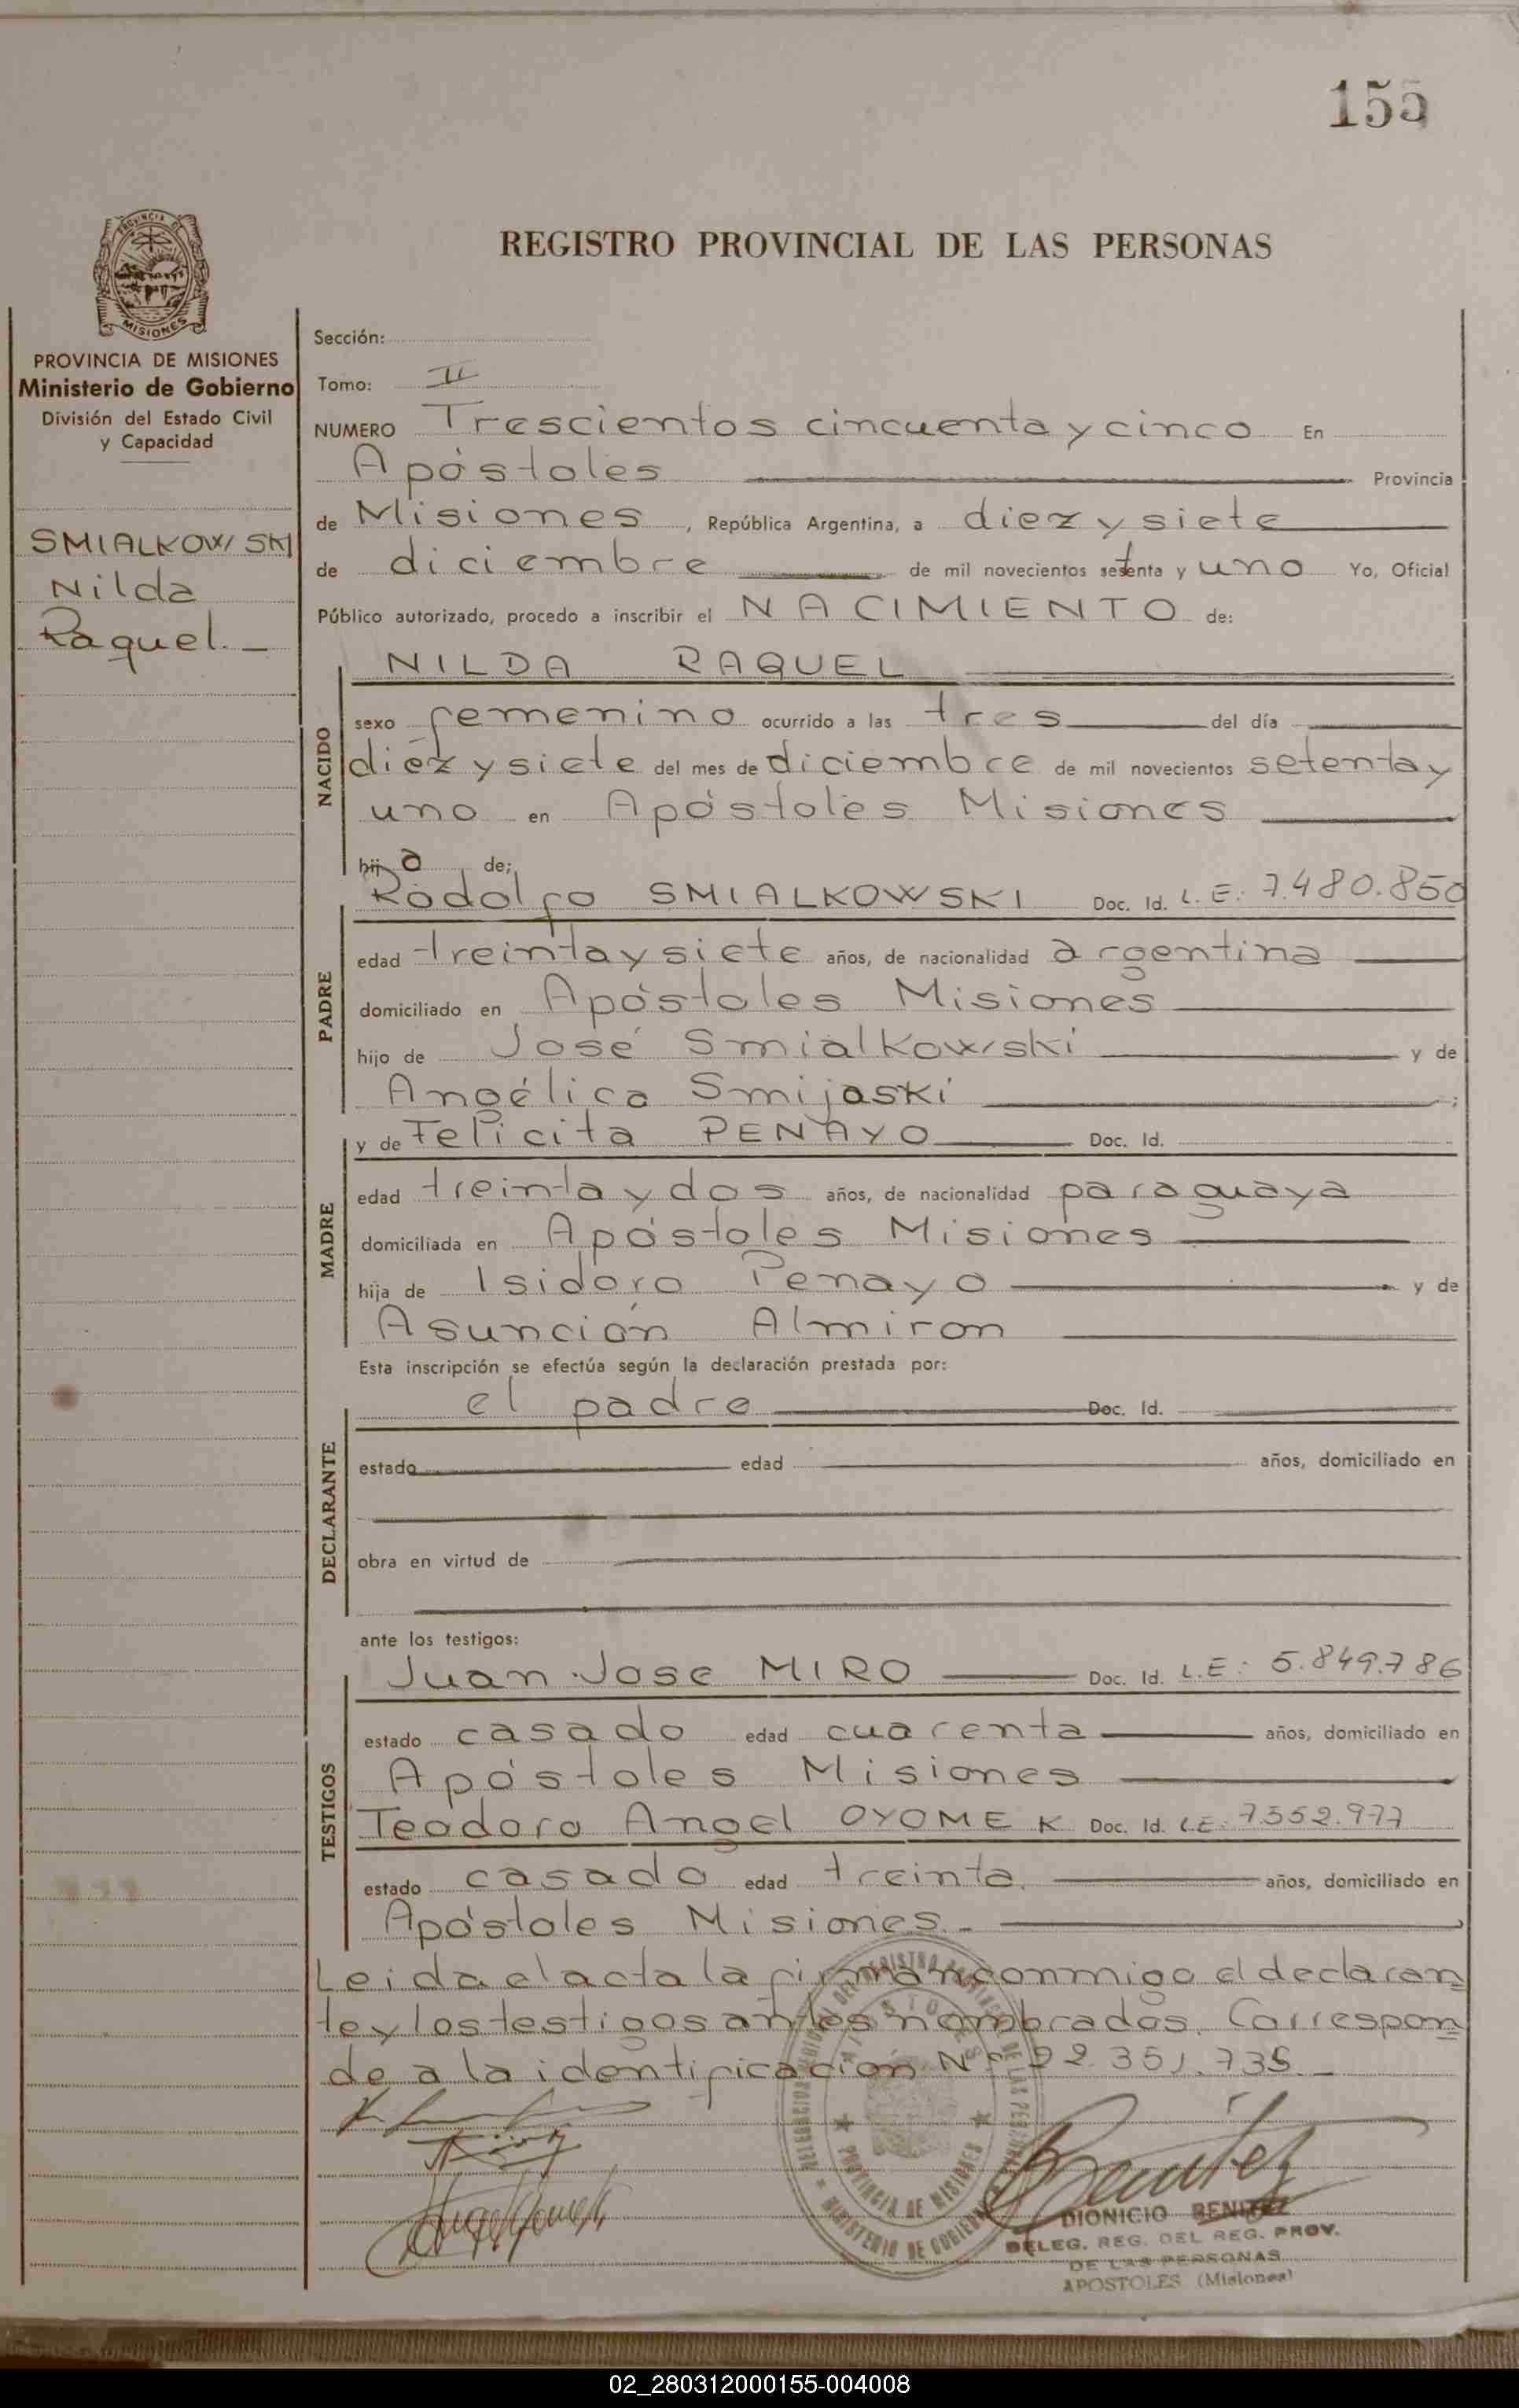 155
PROVINCIA DE
MISIONES
REGISTRO PROVINCIAL DE LAS PERSONAS
PROVINCIA DE MISIONES
Ministerio de Gobierno
División del Estado Civil
y Capacidad
SMIALKOWSKI
Nilda
Raquel.—
Sección:
Tomo: II
NUMERO Trescientos cincuenta y cinco En
Apóstoles Provincia
de Misiones, República Argentina, a diez y siete
de diciembre de mil novecientos setenta y uno Yo, Oficial
Público autorizado, procedo a inscribir el NACIMIENTO de:
NACIDO
NILDA RAQUEL
sexo femenino ocurrido a las tres del día
diéz y siete del mes de diciembre de mil novecientos setenta y
uno en Apóstoles Misiones
hija de;
PADRE
Rodolfo SMIALKOWSKI Doc. Id. L.E: 7.480.850
edad treinta y siete años, de nacionalidad argentina
domiciliado en Apóstoles Misiones
hijo de José Smialkowski y de
Angélica Smijaski ;
MADRE
y de Felicita PENAYO Doc. Id.
edad treinta y dos años, de nacionalidad paraguaya
domiciliada en Apóstoles Misiones
hija de Isidoro Penayo y de
Asunción Almiron
Esta inscripción se efectúa según la declaración prestada por:
DECLARANTE
el padre Doc. Id.
estado edad años, domiciliado en
obra en virtud de
ante los testigos:
TESTIGOS
Juan José MIRO Doc. Id. L.E: 5.849.786
estado casado edad cuarenta años, domiciliado en
Apóstoles Misiones
Teodoro Angel OYOMEK Doc. Id. L.E: 7.552.977
estado casado edad treinta años, domiciliado en
Apóstoles Misiones.—
Leida el acta la firman conmigo el declaran=
te y los testigos antes nombrados. Correspon=
de a la identificación Nº 22.351.735.—
Benitez
DIONICIO BENITEZ
DELEG. REG. DEL REG. PROV.
DE LAS PERSONAS
APOSTOLES (Misiones)
PROVINCIA DE MISIONES
MINISTERIO DE GOBIERNO
02_280312000155-004008